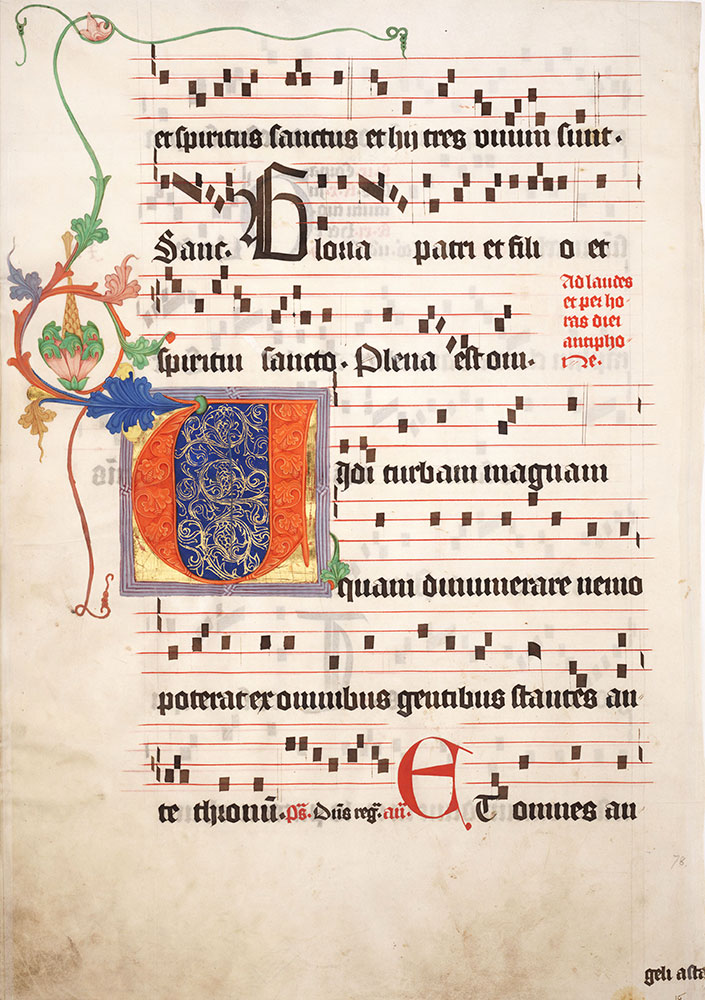 et spiritus sanctus et hij tres vnum sunt.
Sanc. Gloria patri et fili o et
spiritui sancto. Plena est om.
Ad laudes
et per ho
ras diei
antipho
ne.
Vidi turbam magnam
quam dinumerare nemo
poterat ex omnibus gentibus stantes an
te thronū. Ps. Dūs reg. añ. ET omnes an
78
geli asta